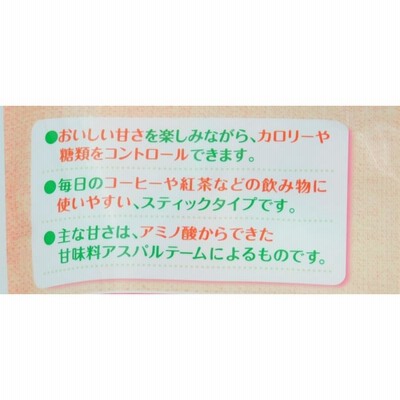 ●おいしい甘さを楽しみながら、カロリーや
糖類をコントロールできます。
●毎日のコーヒーや紅茶などの飲み物に
使いやすい、スティックタイプです。
●主な甘さは、アミノ酸からできた
甘味料アスパルテームによるものです。